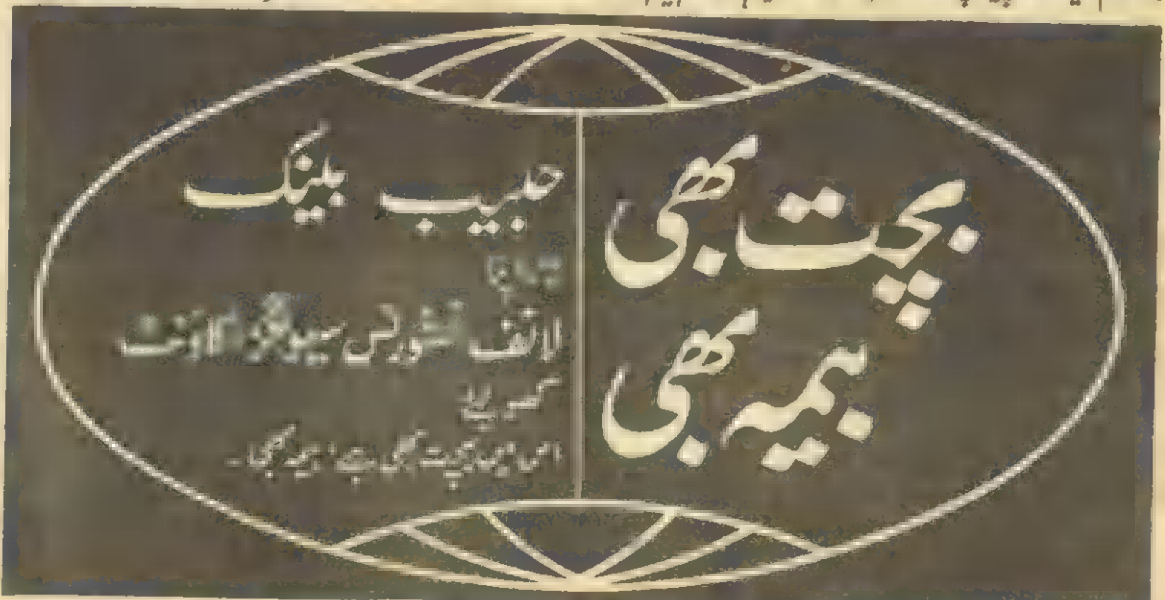 بچت بھی
بیمہ بھی
حبیب بینک
لائف انشورنس سیونگز اکاؤنٹ
اس میں بچت بھی ہے، بیمہ بھی۔